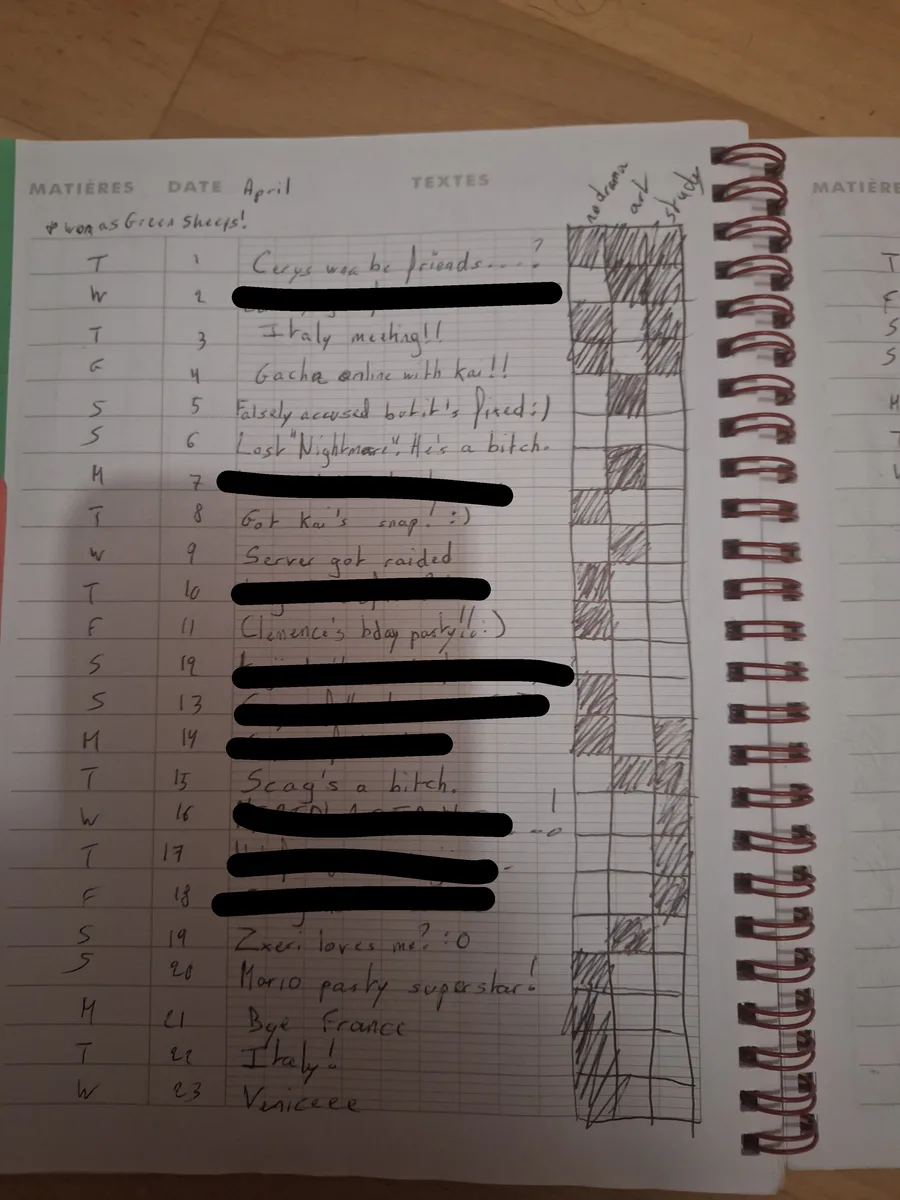 MATIÈRES DATE April TEXTES no drama art study MATIÈRE
won as Green Sheeps!
T 1 Cerys wna be friends....?
W 2
T 3 Italy meeting!!
F 4 Gacha online with Kai!!
S 5 Falsely accused but it's fixed :)
S 6 Lost "Nightmare". He's a bitch.
M 7
T 8 Got Kai's snap! :)
W 9 Server got raided
T 10
F 11 Clémence's bday party!! :)
S 12
S 13
M 14
T 15 Scag's a bitch.
W 16
T 17
F 18
S 19 Zxeri loves me? :O
S 20 Mario party superstar!
M 21 Bye France
T 22 Italy!
W 23 Veniceee
T
F
S
S
M